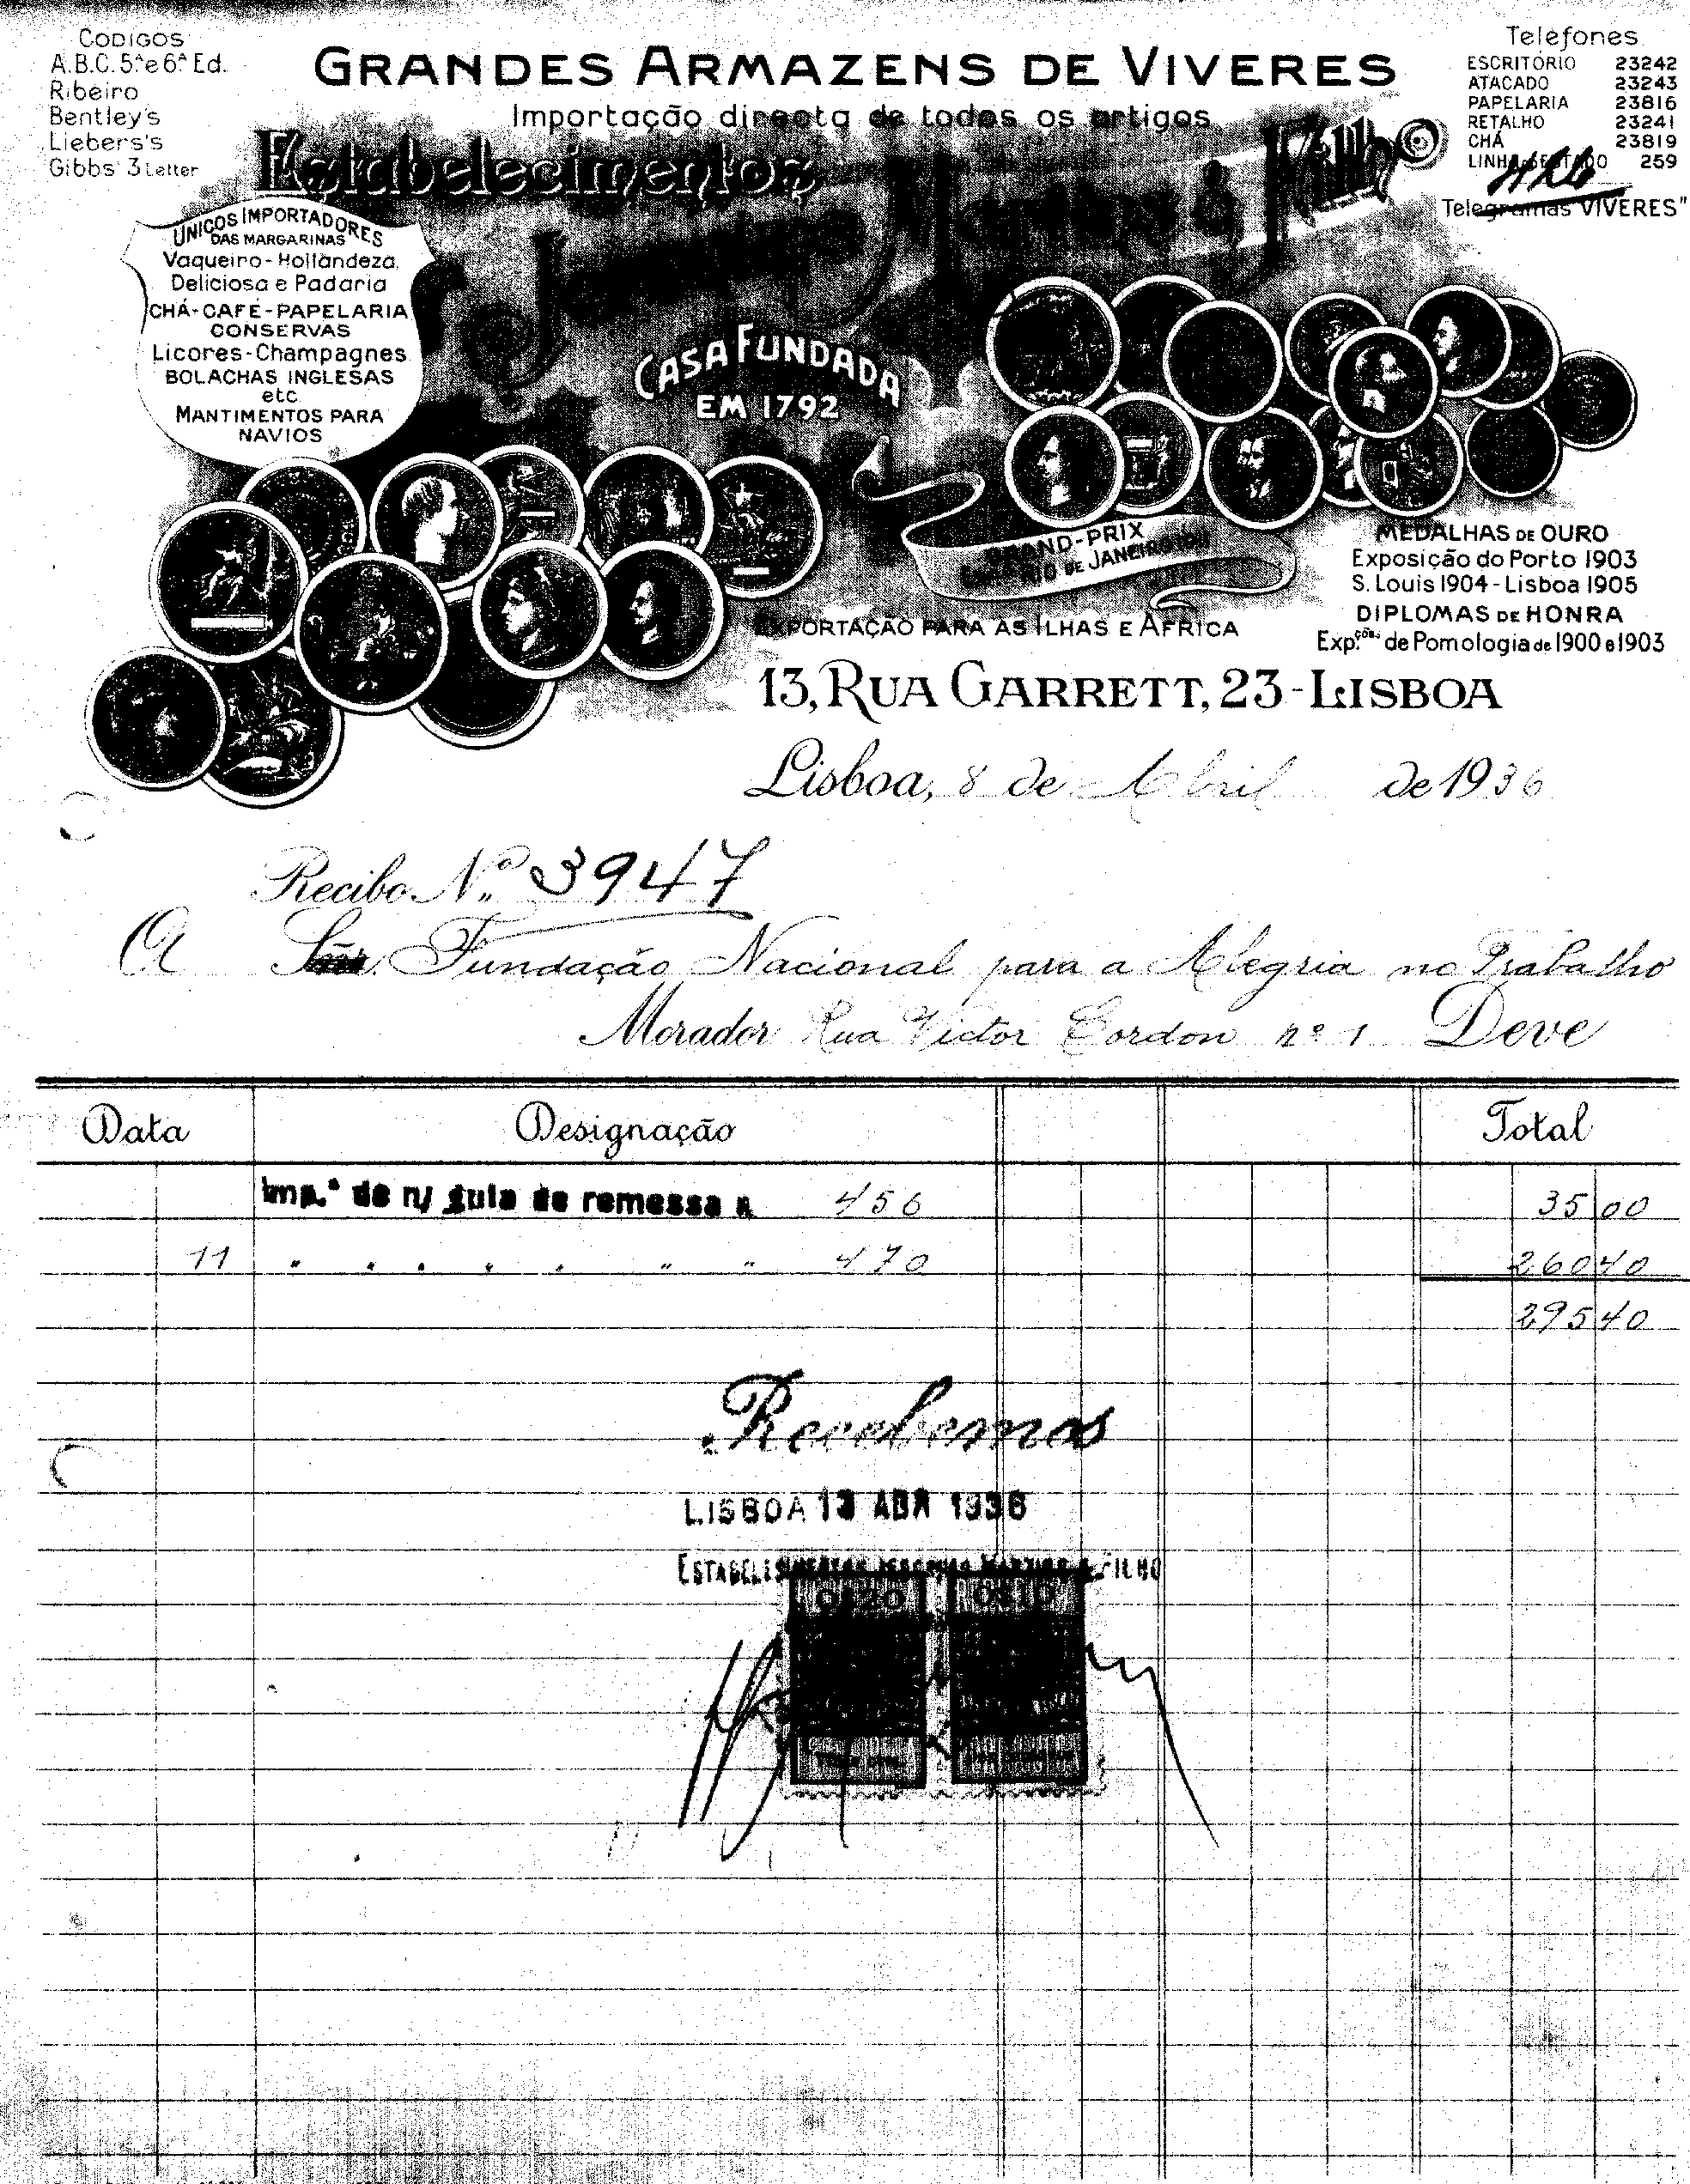 CODIGOS
A.B.C. 5.ª e 6.ª Ed.
Ribeiro
Bentley's
Liebers's
Gibbs 3 Letter
GRANDES ARMAZENS DE VIVERES
Importação directa de todos os artigos
Estabelecimentos
Jeronimo Martins & Filho
Telefones
ESCRITÓRIO 23242
ATACADO 23243
PAPELARIA 23816
RETALHO 23241
CHÁ 23819
259
Telegramas VIVERES"
UNICOS IMPORTADORES
DAS MARGARINAS
Vaqueiro-Hollandeza,
Deliciosa e Padaria
CHÁ-CAFÉ-PAPELARIA
CONSERVAS
Licores-Champagnes
BOLACHAS INGLESAS
etc
MANTIMENTOS PARA
NAVIOS
CASA FUNDADA
EM 1792
GRAND-PRIX
RIO DE JANEIRO
MEDALHAS DE OURO
Exposição do Porto 1903
S. Louis 1904-Lisboa 1905
DIPLOMAS DE HONRA
Exp.ções de Pomologia de 1900 e 1903
EXPORTAÇÃO PARA AS ILHAS E AFRICA
13, RUA GARRETT, 23-LISBOA
Lisboa, 8 de Abril de 1936
Recibo N.º 3947
A Fundação Nacional para a Alegria no Trabalho
Morador Rua Victor Cordon nº 1 Deve
Data Designação Total
Imp.ª de n/ guia de remessa n. 456 35 00
11 " " " " " " " 470 260 40
295 40
Recebemos
LISBOA 13 ABR 1936
ESTABELECIMENTOS JERONIMO MARTINS & FILHO
0$20 0$10